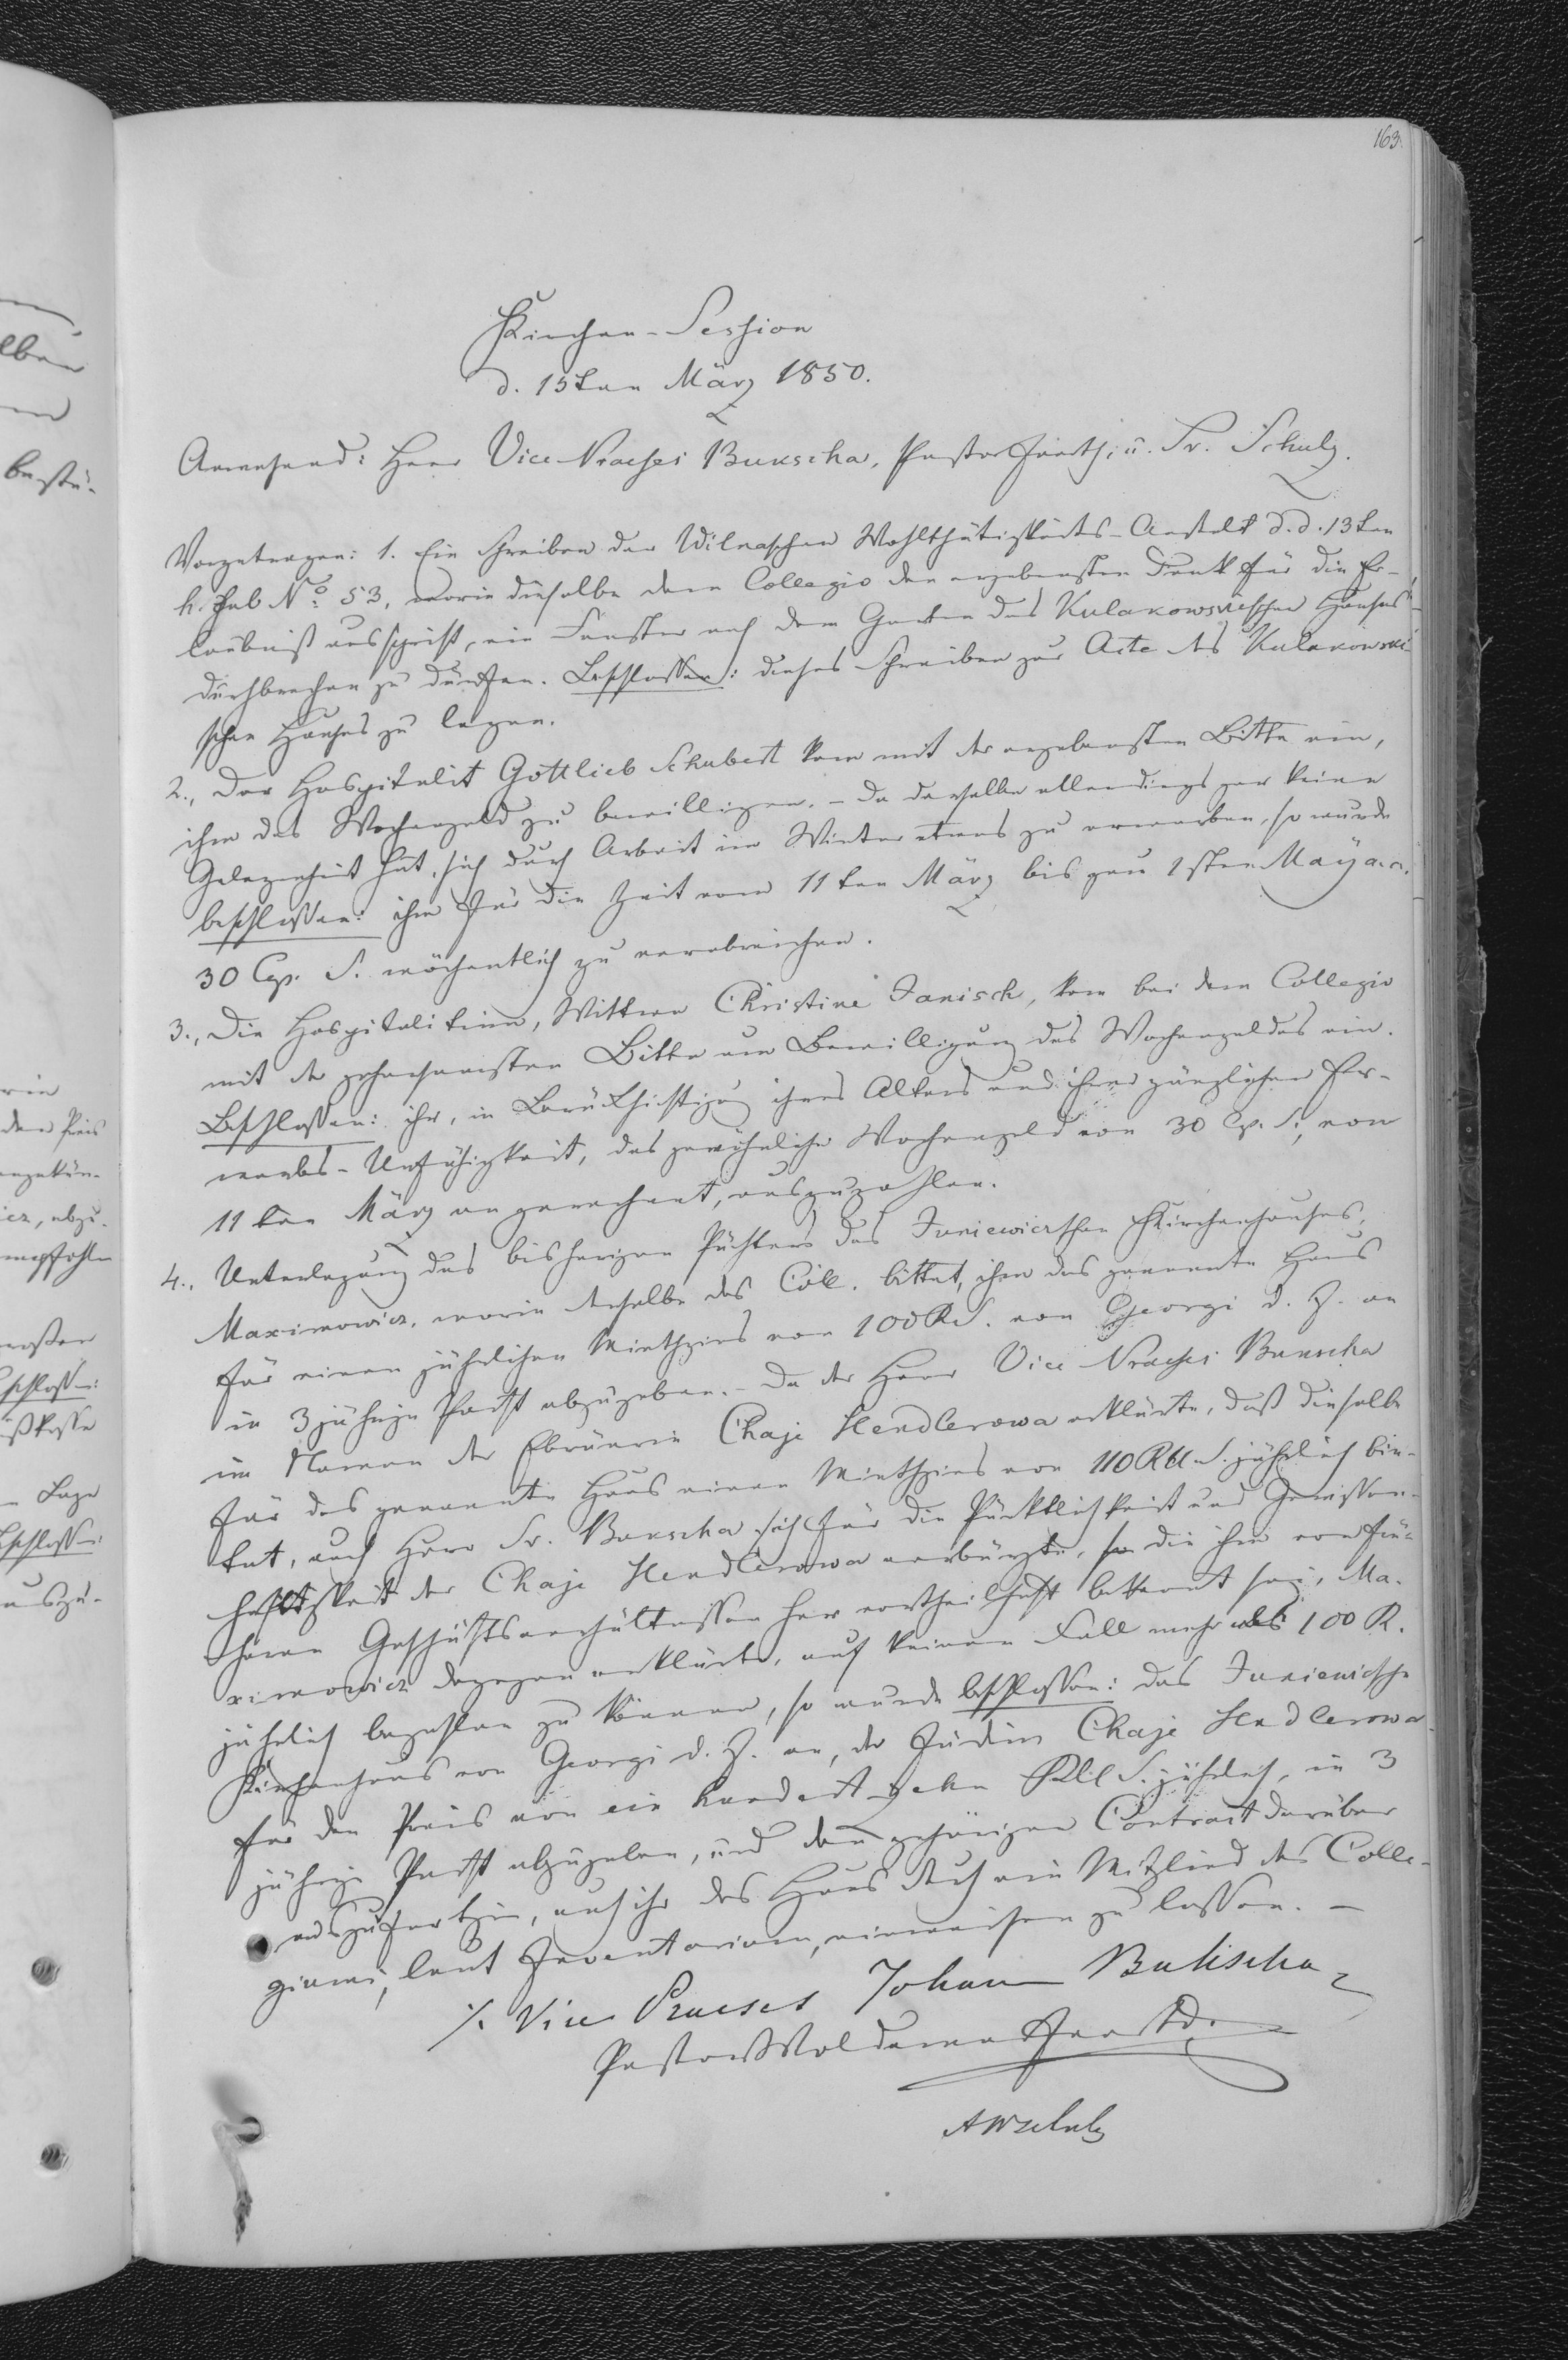 163.
Kirchen-Session
d. 15ten März 1850.
Anwesend: Herr Vice-Praeses Bukscha, Pastor Foerth; u. Sr. Schulz.
Vorgetragen: 1. Ein Schreiben der Wilnaschen Wohlthätigkeits-Anstalt d. d. 13ten
h. sub No: 53, worin dieselbe dem Collegio den ergebensten Dank für die Er-
laubniß ausspricht, ein Fenster nach dem Garten des Kulakowskischen Hauses
durchbrechen zu dürfen. Beschlossen: dieses Schreiben zur Acte des Kulakowski-
schen Hauses zu legen.
2., Der Hospitalit Gottlieb Schubert kam mit der ergebensten Bitte ein,
ihm das Wochengeld zu bewilligen. - Da derselbe allerdings gar keine
Gelegenheit hat, sich durch Arbeit im Winter etwas zu erwerben, so wurde
beschlossen: ihm für die Zeit vom 11ten März bis zum 1sten May a. c.
30 Cop. S. wöchentlich zu verabreichen.
3., Die Hospitalitinn, Wittwe Christine Janisch, kam bei dem Collegio
mit der gehorsamsten Bitte um Bewilligung des Wochengeldes ein.
Beschlossen: ihr, in Berücksichtigung ihres Alters und ihrer gänzlichen Er-
werbs-Unfähigkeit, das gewöhnliche Wochengeld von 30 Cop. S., vom
11ten März an gerechnet, auszuzahlen.
4., Unterlegung des bisherigen Pächters des Juniewiczschen Kirchenhauses,
Maximowicz, worin derselbe das Coll. bittet, ihm das genannte Haus
für einen jährlichen Miethzins von 100 R S. von Georgi d. J. an
in 3jährige Pacht abzugeben. - Da der Herr Vice Praeses Bukscha
im Namen der Ebräerin Chaje Hendlerowa erklärte, daß dieselbe
für das genannte Haus einen Miethzins von 110 Rbl S. jährlich bie-
tet, auch Herr Sr. Bukscha sich für die Pünktlichkeit und Gewissen-
haftigkeit der Chaje Hendlerowa verbürgte, die ihm von frü-
heren Geschäftsverhältnissen her vortheilhaft bekannt sei, Ma-
ximowicz dagegen erklärte, auf keinen Fall mehr als 100 R.
jährlich bezahlen zu können, so wurde beschlossen: das Juniewiczsche
Kirchenhaus von Georgi d. J. an, der Jüdin Chaje Hendlerowa
für den Preis von ein hundert zehn Rbl S. jährlich, in 3
jährige Pacht abzugeben, und den gehörigen Contract darüber
auszufertigen, auch ihr das Haus durch ein Mitglied des Colle-
giums, laut Inventarium, einweisen zu lassen. -
Vice Praeses Johann Bukscha
Pastor Woldemar
AWSchulz